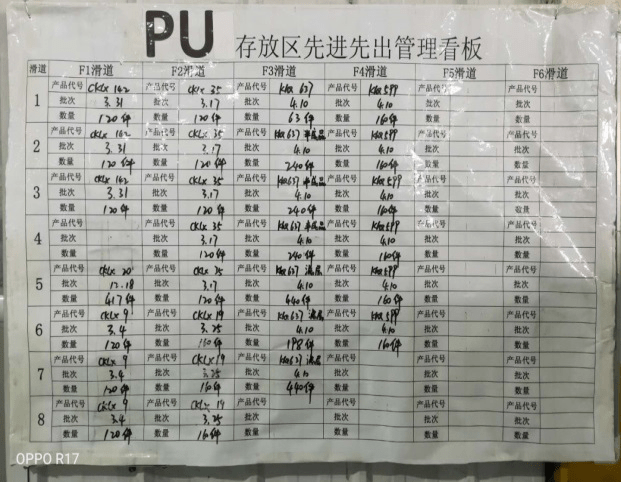 PU 存放区先进先出管理看板
滑道 F1滑道 F2滑道 F3滑道 F4滑道 F5滑道 F6滑道
1 产品代号 CKLx 162 产品代号 CKLx 35 产品代号 637 产品代号 599 产品代号 产品代号
批次 3.31 批次 3.17 批次 4.10 批次 4.10 批次 批次
数量 120件 数量 120件 数量 63件 数量 160件 数量 数量
2 产品代号 CKLx 162 产品代号 CKLx 35 产品代号 637 产品代号 599 产品代号 产品代号
批次 3.31 批次 3.17 批次 4.10 批次 4.10 批次 批次
数量 120件 数量 120件 数量 240件 数量 160件 数量 数量
3 产品代号 CKLx 162 产品代号 CKLx 35 产品代号 637 产品代号 599 产品代号 产品代号
批次 3.31 批次 3.17 批次 4.10 批次 4.10 批次 批次
数量 120件 数量 120件 数量 240件 数量 160件 数量 数量
4 产品代号 产品代号 CKLx 35 产品代号 637 产品代号 599 产品代号 产品代号
批次 批次 3.17 批次 4.10 批次 4.10 批次 批次
数量 数量 120件 数量 240件 数量 160件 数量 数量
5 产品代号 CKLx 20 产品代号 CKLx 产品代号 637 产品代号 599 产品代号 产品代号
批次 12.18 批次 3.17 批次 4.10 批次 4.10 批次 批次
数量 417件 数量 120件 数量 440件 数量 160件 数量 数量
6 产品代号 CKLx 9 产品代号 CKLx 19 产品代号 637 产品代号 599 产品代号 产品代号
批次 3.4 批次 3.25 批次 4.10 批次 4.10 批次 批次
数量 120件 数量 160件 数量 198件 数量 160件 数量 数量
7 产品代号 CKLx 9 产品代号 CKLx 19 产品代号 637 产品代号 产品代号 产品代号
批次 3.4 批次 3.25 批次 4.10 批次 批次 批次
数量 120件 数量 160件 数量 440件 数量 数量 数量
8 产品代号 CKLx 9 产品代号 CKLx 19 产品代号 产品代号 产品代号 产品代号
批次 3.4 批次 3.25 批次 批次 批次 批次
数量 120件 数量 160件 数量 数量 数量 数量
OPPO R17